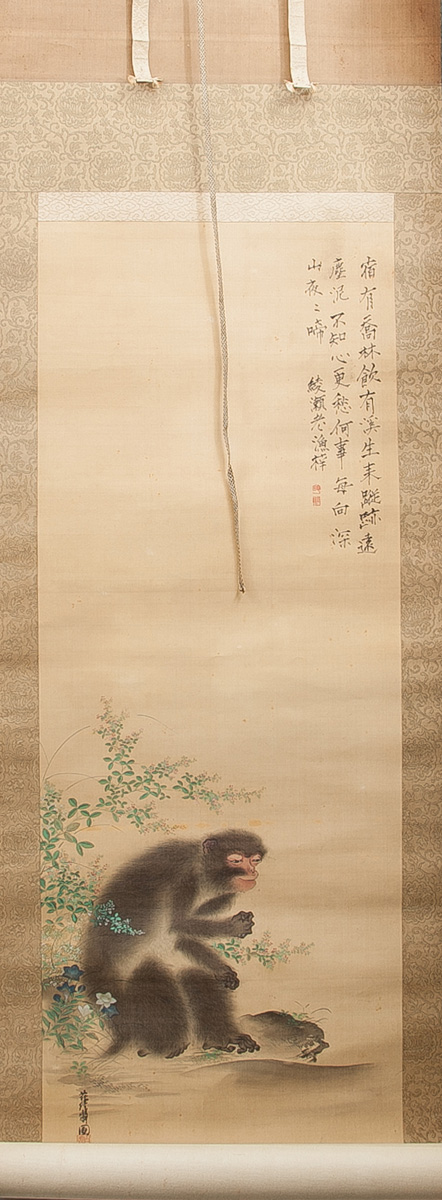 宿有喬林飲有溪生来蹤跡遠
塵泥不知心更愁何事毎向深
山夜〻啼 綾瀬老漁梓